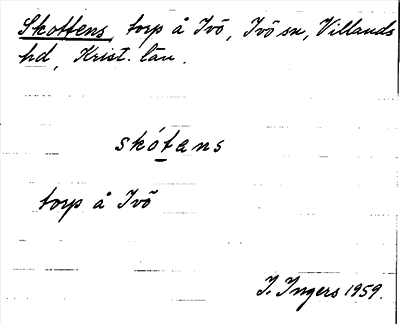 Skottens, torp å Ivö, Ivö sn, Villands
hd, Krist. län.
skótans
torp å Ivö
I. Ingers 1959.